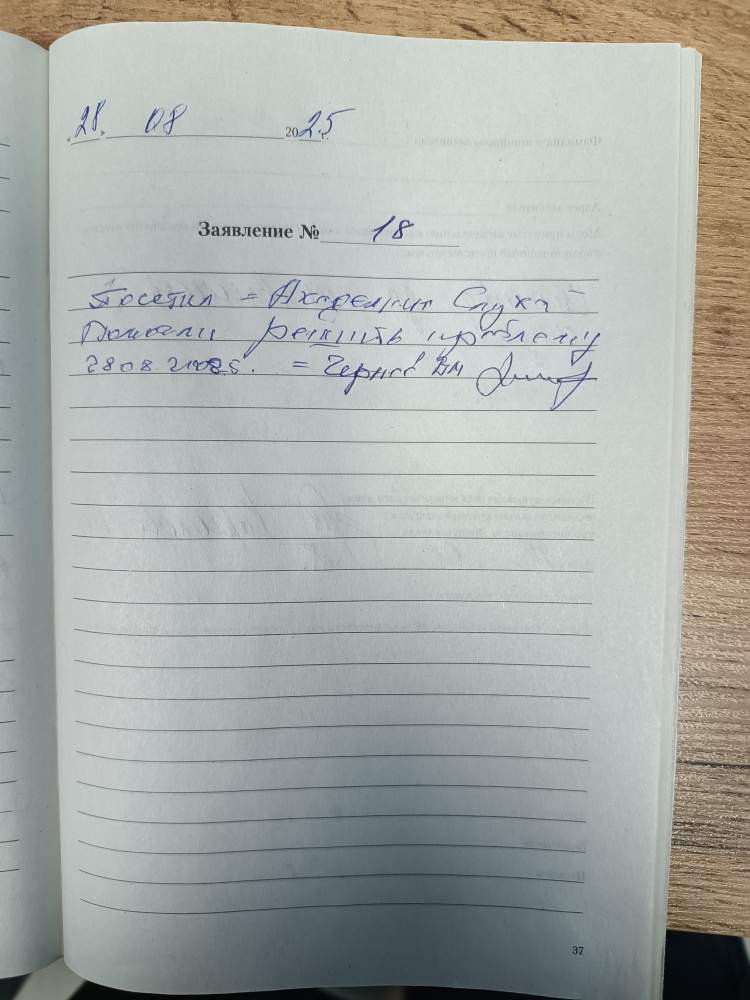 28. 08 2025 г.
Заявление № 18
Посетил = Академия Слуха
Помогли решить проблему
28 08 2025. = Чернов ВМ
37